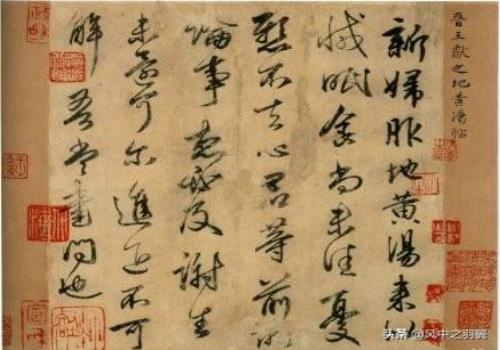 晉王獻之地黄湯帖
新婦服地黄湯来似
減眠食尚未佳憂
懸不去心君等前所
論事想必及謝生
未還可尔進退不可
解吾當書問也
头条 @风中之羽翼